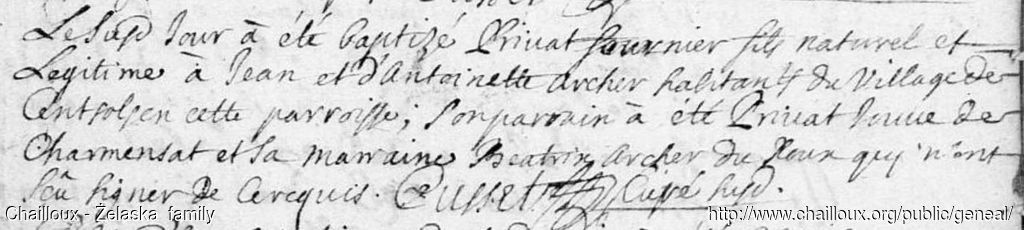 Le susd Jour à été baptizé Privat fournier fils naturel et
Legitime à Jean et d'Antoinette Archer habitants du Village de
en cette parroisse; son parrain à été Privat Jouve de
Charmensat et sa marraine Beatrix Archer du Roux qui n'ont
sçû signer de ce requis. Cusset Curé susd.
Chailloux - Żelaska family
http://www.chailloux.org/public/geneal/